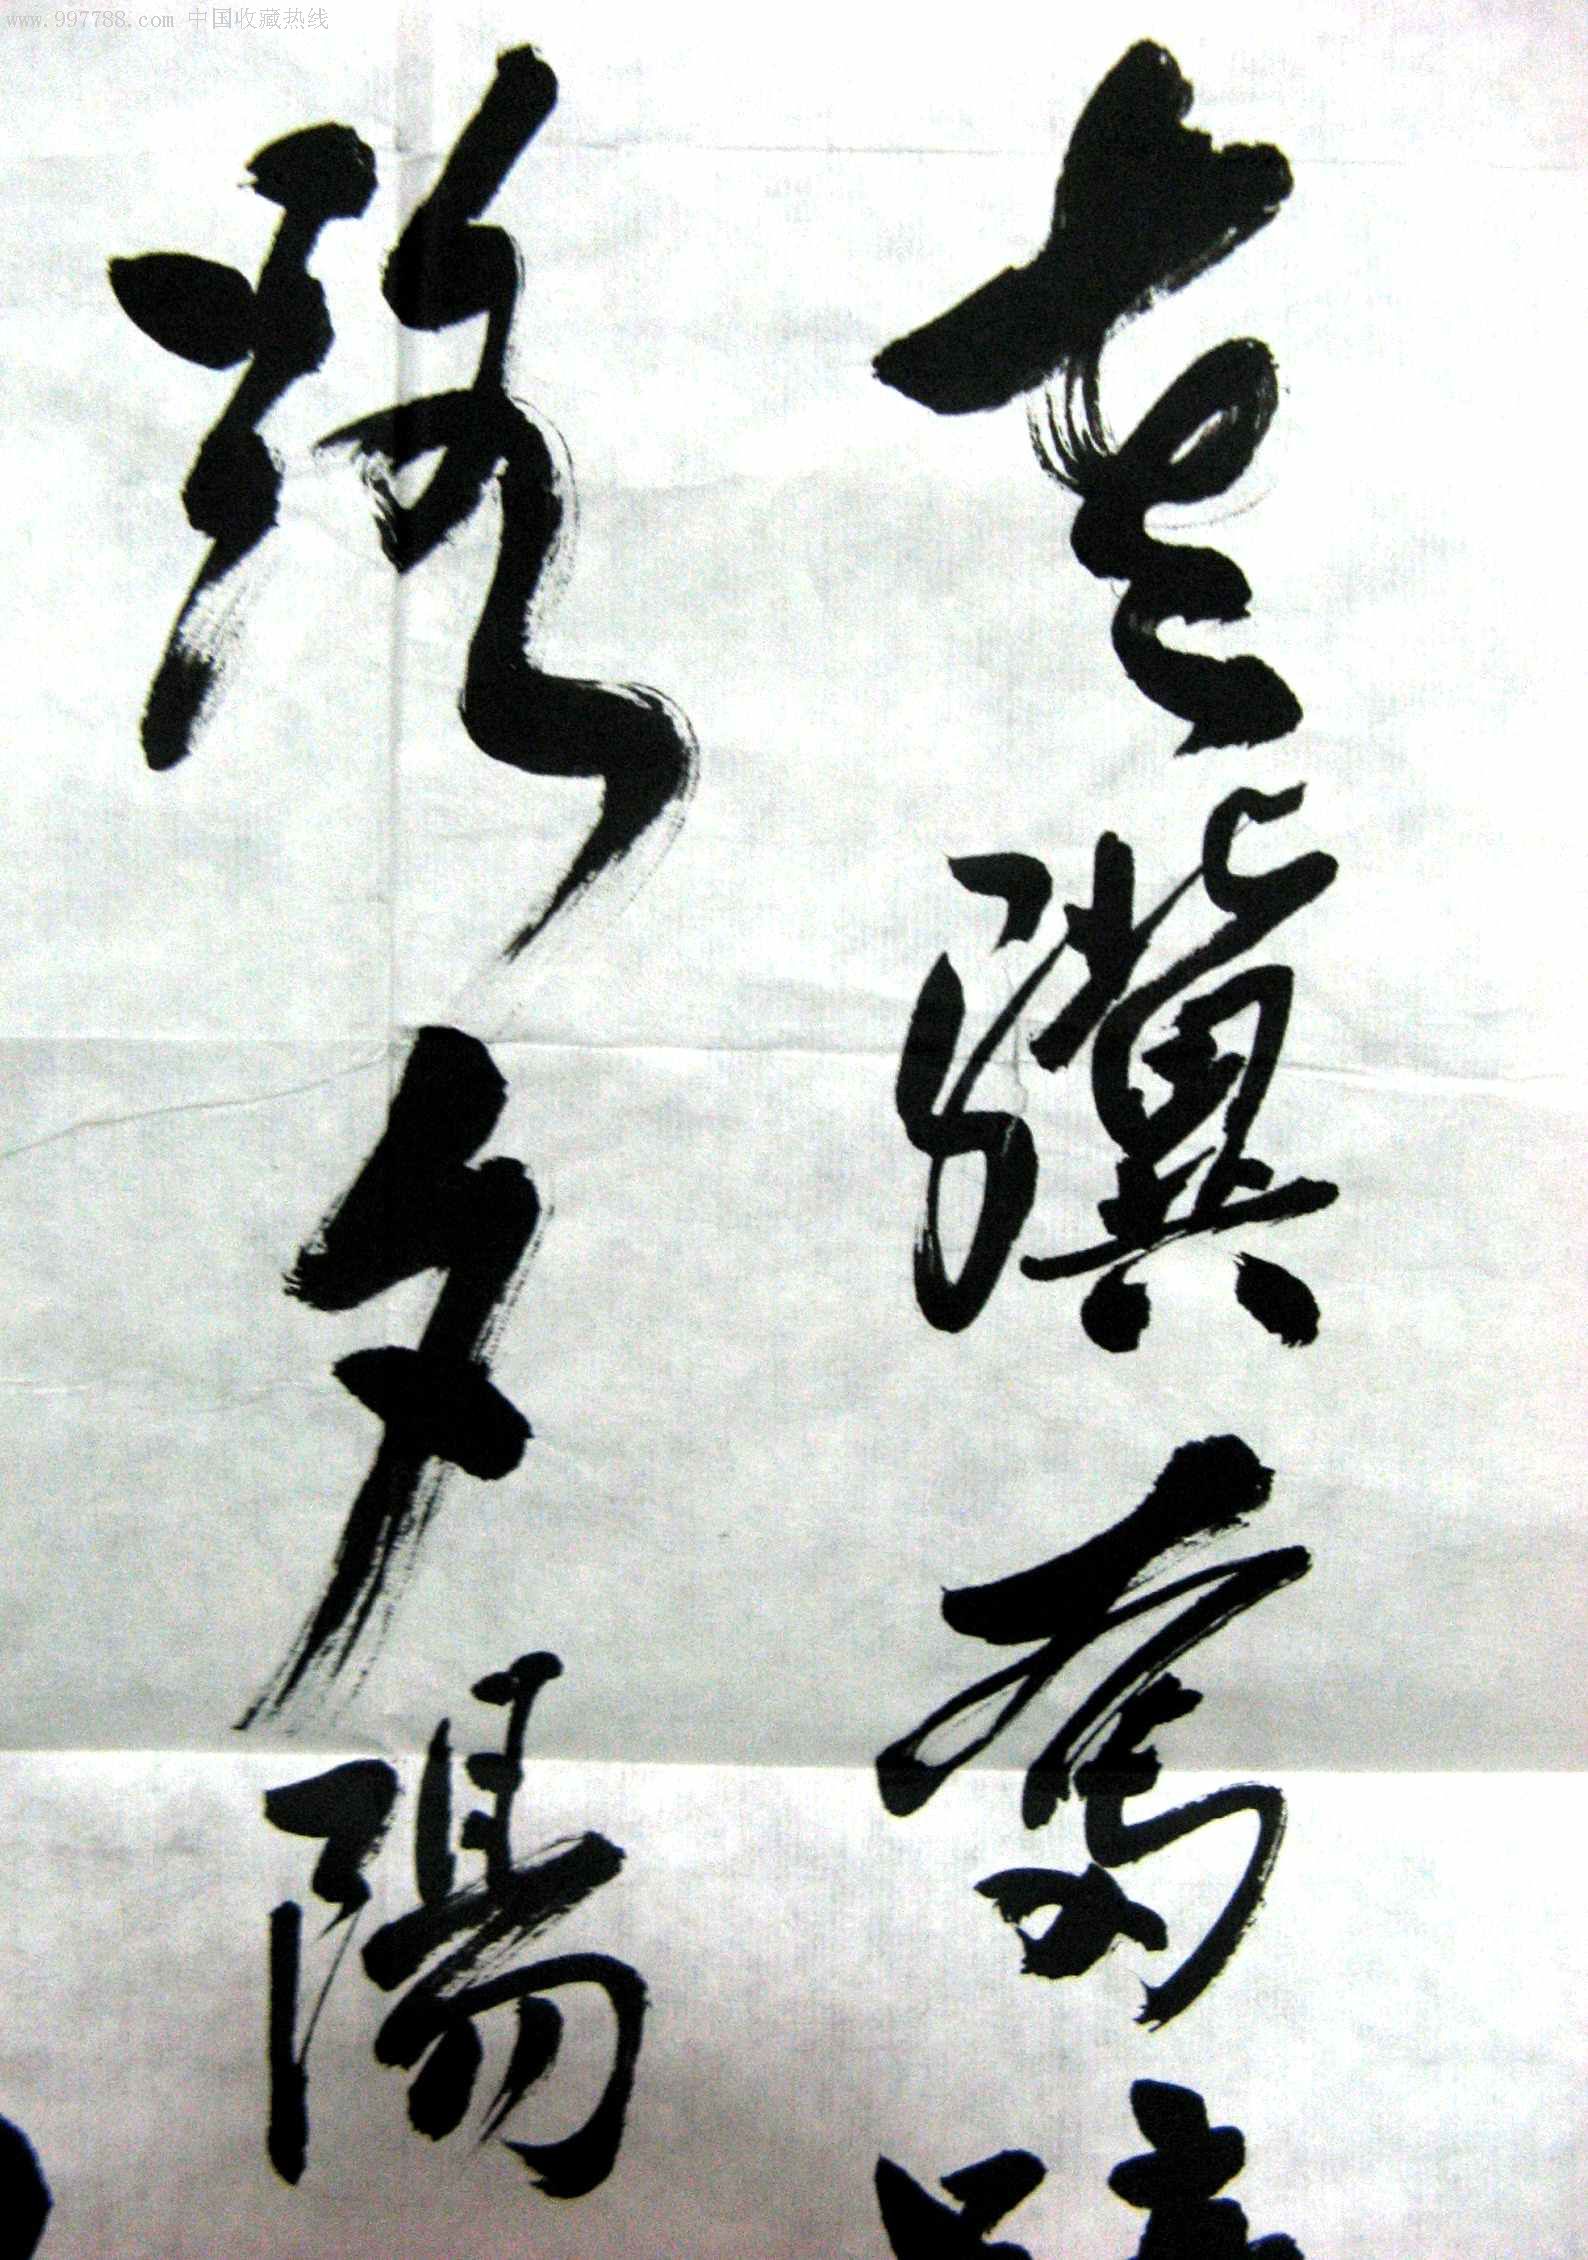 www.997788.com 中国收藏热线
老驥奮蹄
夕陽